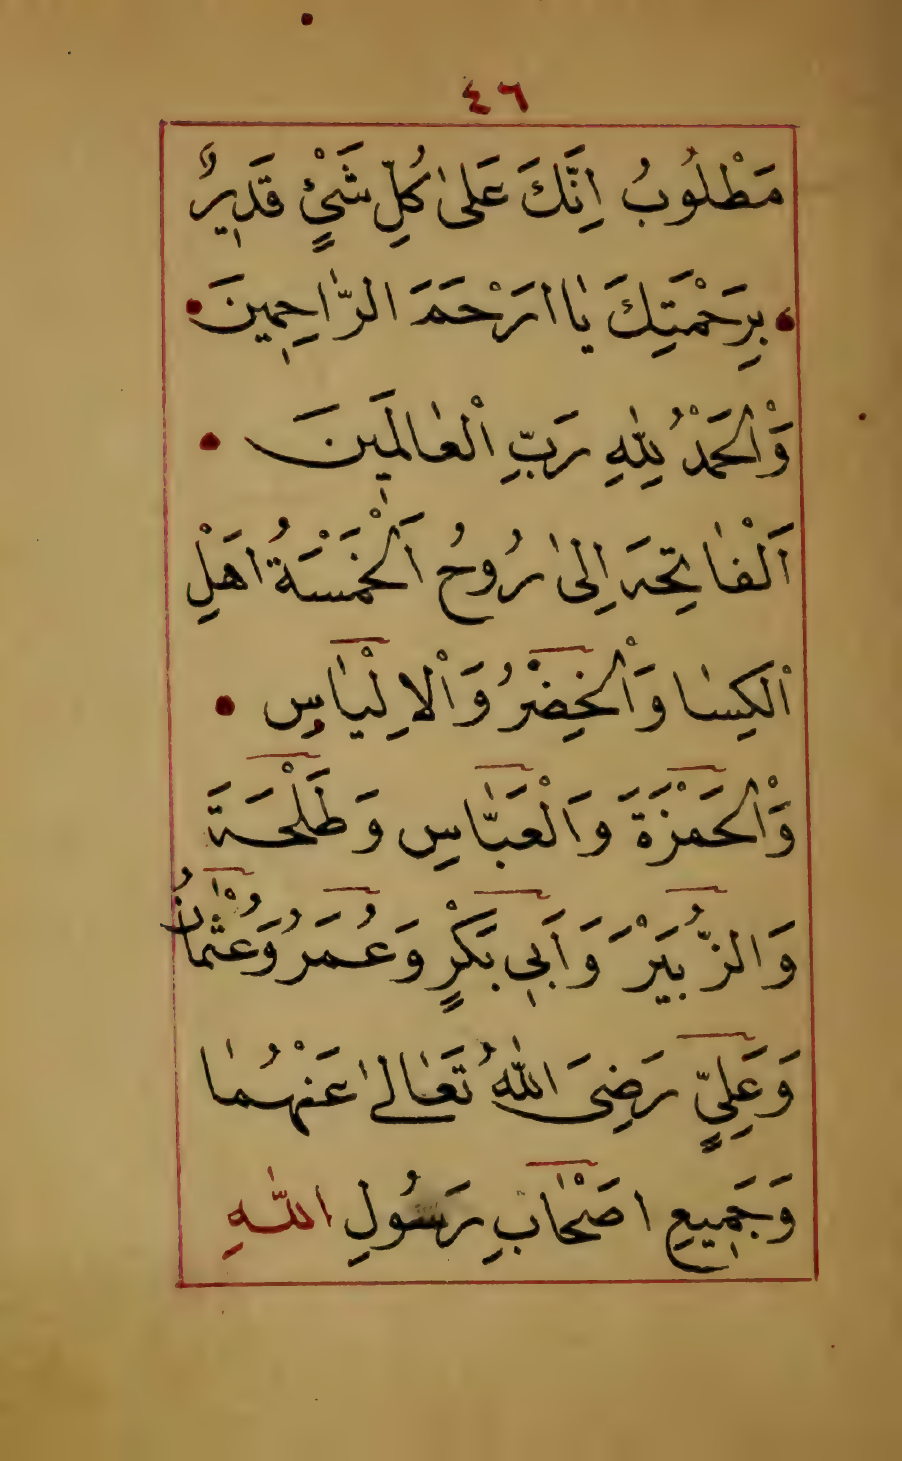 ٤٦
مَطْلُوبُ اِنَّكَ عَلىٰ كُلِّ شَىْءٍ قَدِيرٌ
بِرَحْمَتِكَ يَا اَرْحَمَ الرَّاحِمِينَ
وَالْحَمْدُ لِلّٰهِ رَبِّ الْعَالَمِينَ
اَلْفَاتِحَه اِلىٰ رُوحُ اَلْخَمْسَةُ اهَلِ
الْكِسَا وَالْخِضْرُ وَالْاِلْيَاسِ
وَالْحَمْزَةَ وَالْعَبَّاسِ وَطَلْحَةَ
وَالزُّبَيْرَ وَاَبِى بَكْرٍ وَعُمَرُ وَعُثْمَانُ
وَعَلِىٍّ رَضِىَ اللّٰهُ تَعَالىٰ عَنْهُمَا
وَجَمِيعِ اصَحْابِ رَسُولِ اللّٰهِ